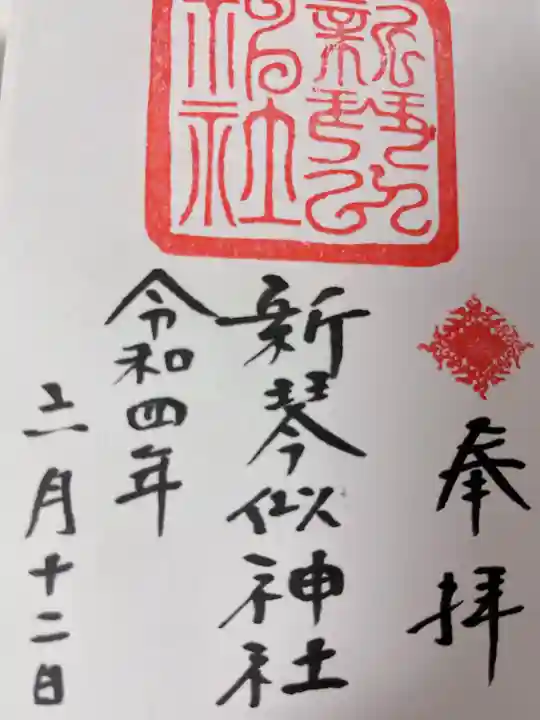 奉拝
新琴似神社
新琴似神社
令和四年
六月十二日